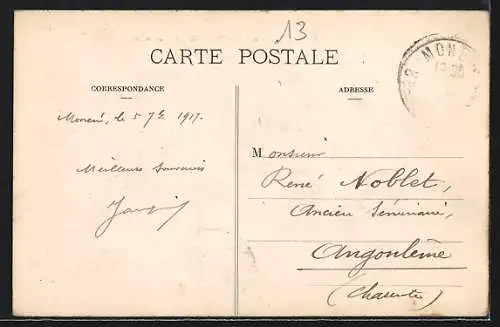 13
CARTE POSTALE
CORRESPONDANCE
ADRESSE
le 5 7bre 1917.
Meilleurs Souvenirs
Monsieur
René Noblet,
Ancien Séminaire,
Angoulême
(Charente)
MON